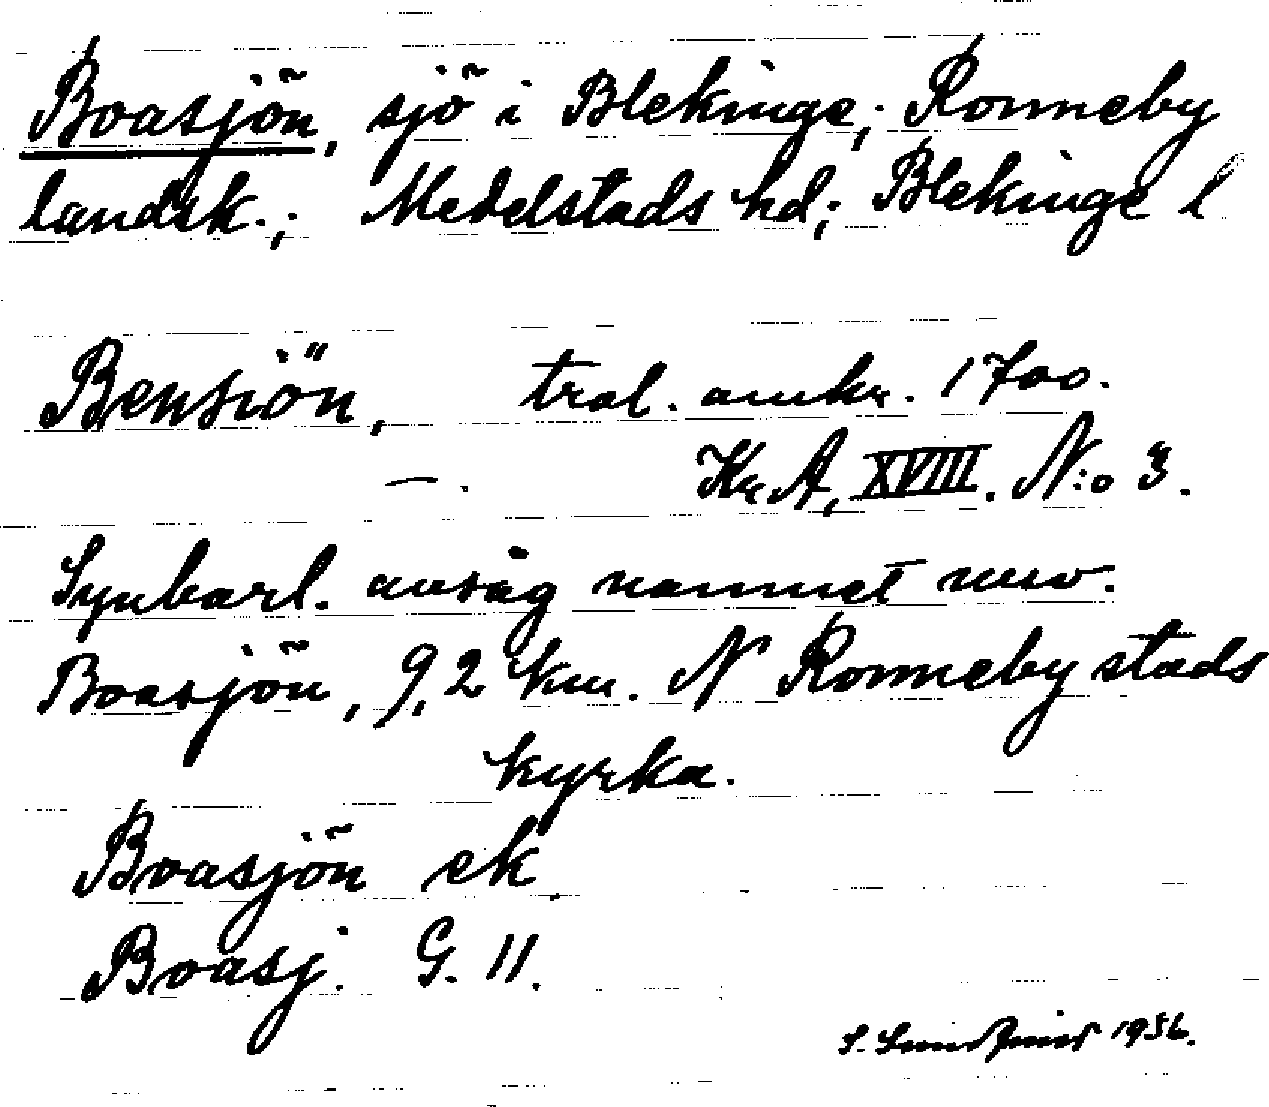 Boasjön, sjö i Blekinge; Ronneby
landsk.; Medelstads hd; Blekinge l
Bensiön, trol. omkr. 1700.
—. KrA, XVIII. N:o 3.
Synbarl. avsåg namnet nuv.
Boasjön, 9,2 km. N Ronneby stads
kyrka.
Boasjön ek
Boasj. G. 11.
S. 1956.